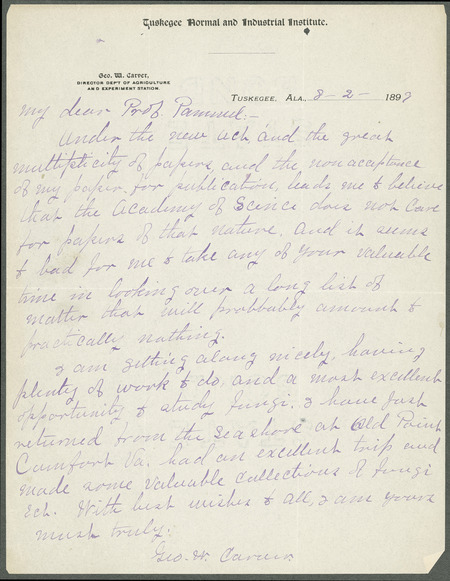 Tuskegee Normal and Industrial Institute.
Geo. W. Carver,
DIRECTOR DEP'T OF AGRICULTURE
AND EXPERIMENT STATION.
TUSKEGEE, ALA., 8-2- 1897
My dear Prof. Pammel:-
Under the new act, and the great
multiplicity of papers, and the nonacceptance
of my paper for publication, leads me to believe
that the Academy of Science does not care
for papers of that nature. And it seems
to bad for me to take any of your valuable
time in looking over a long list of
matter that will probbably amount to
practically nothing.
I am getting along nicely, having
plenty of work to do. and a most excellent
opportunity to study fungi. I have just
returned from the seashore at Old Point
Comfort Va. had an excellent trip and
made some valuable collections of fungi
ect. With best wishes to all, I am yours
most truly:
Geo. W. Carver.